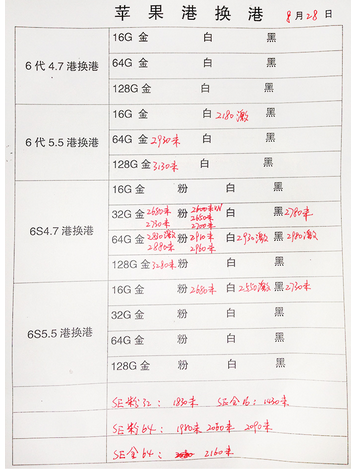 苹果港换港 8月28日
6代4.7港换港
16G 金 白 黑
64G 金 白 黑
128G 金 白 黑
6代5.5港换港
16G 金 白 2180激 黑
64G 金 2930未 白 黑
128G 金 3130未 白 黑
6S4.7港换港
16G 金 粉 白 黑
32G 金 2680未 粉 白 黑 2780未
2650未
2730未 2700未
64G 金 粉 白 2930激 黑 2980激
2880未 2960未
128G 金 3280未 粉 白 黑
6S5.5港换港
16G 金 粉 2680未 白 2550激 黑 2730未
32G 金 粉 白 黑
64G 金 粉 白 黑
128G 金 粉 白 黑
SE粉32: 1830未 SE金16: 1430未
SE粉64: 1980未 2050未 2090未
SE金64: 2160未